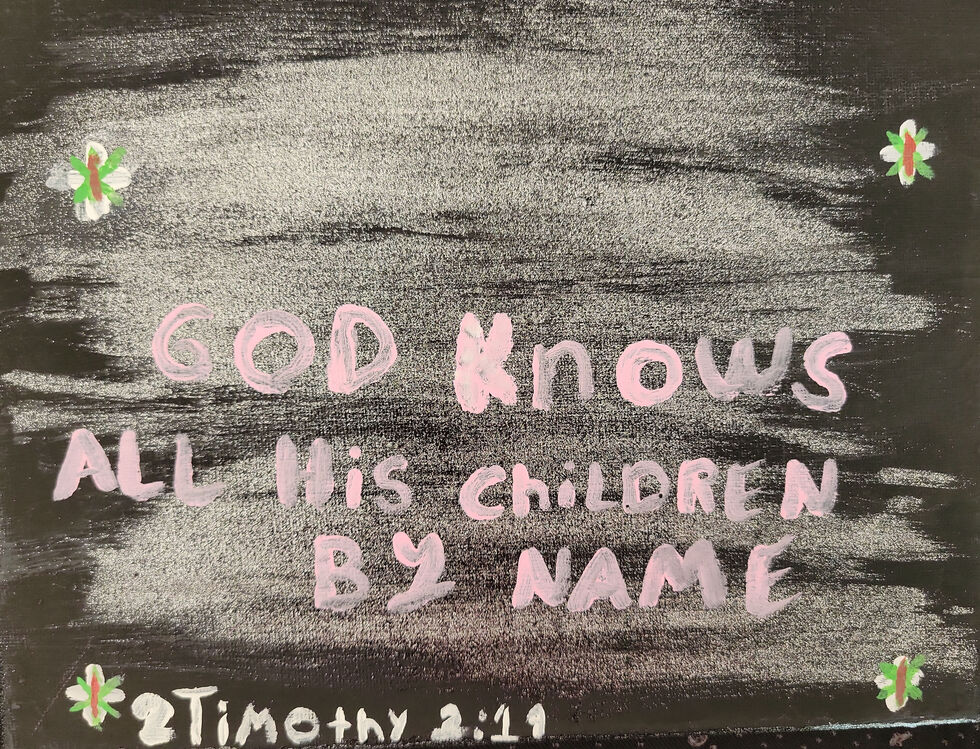 GOD KnoWS
ALL His ChiLDREN
BY NAME
2Timothy 2:19